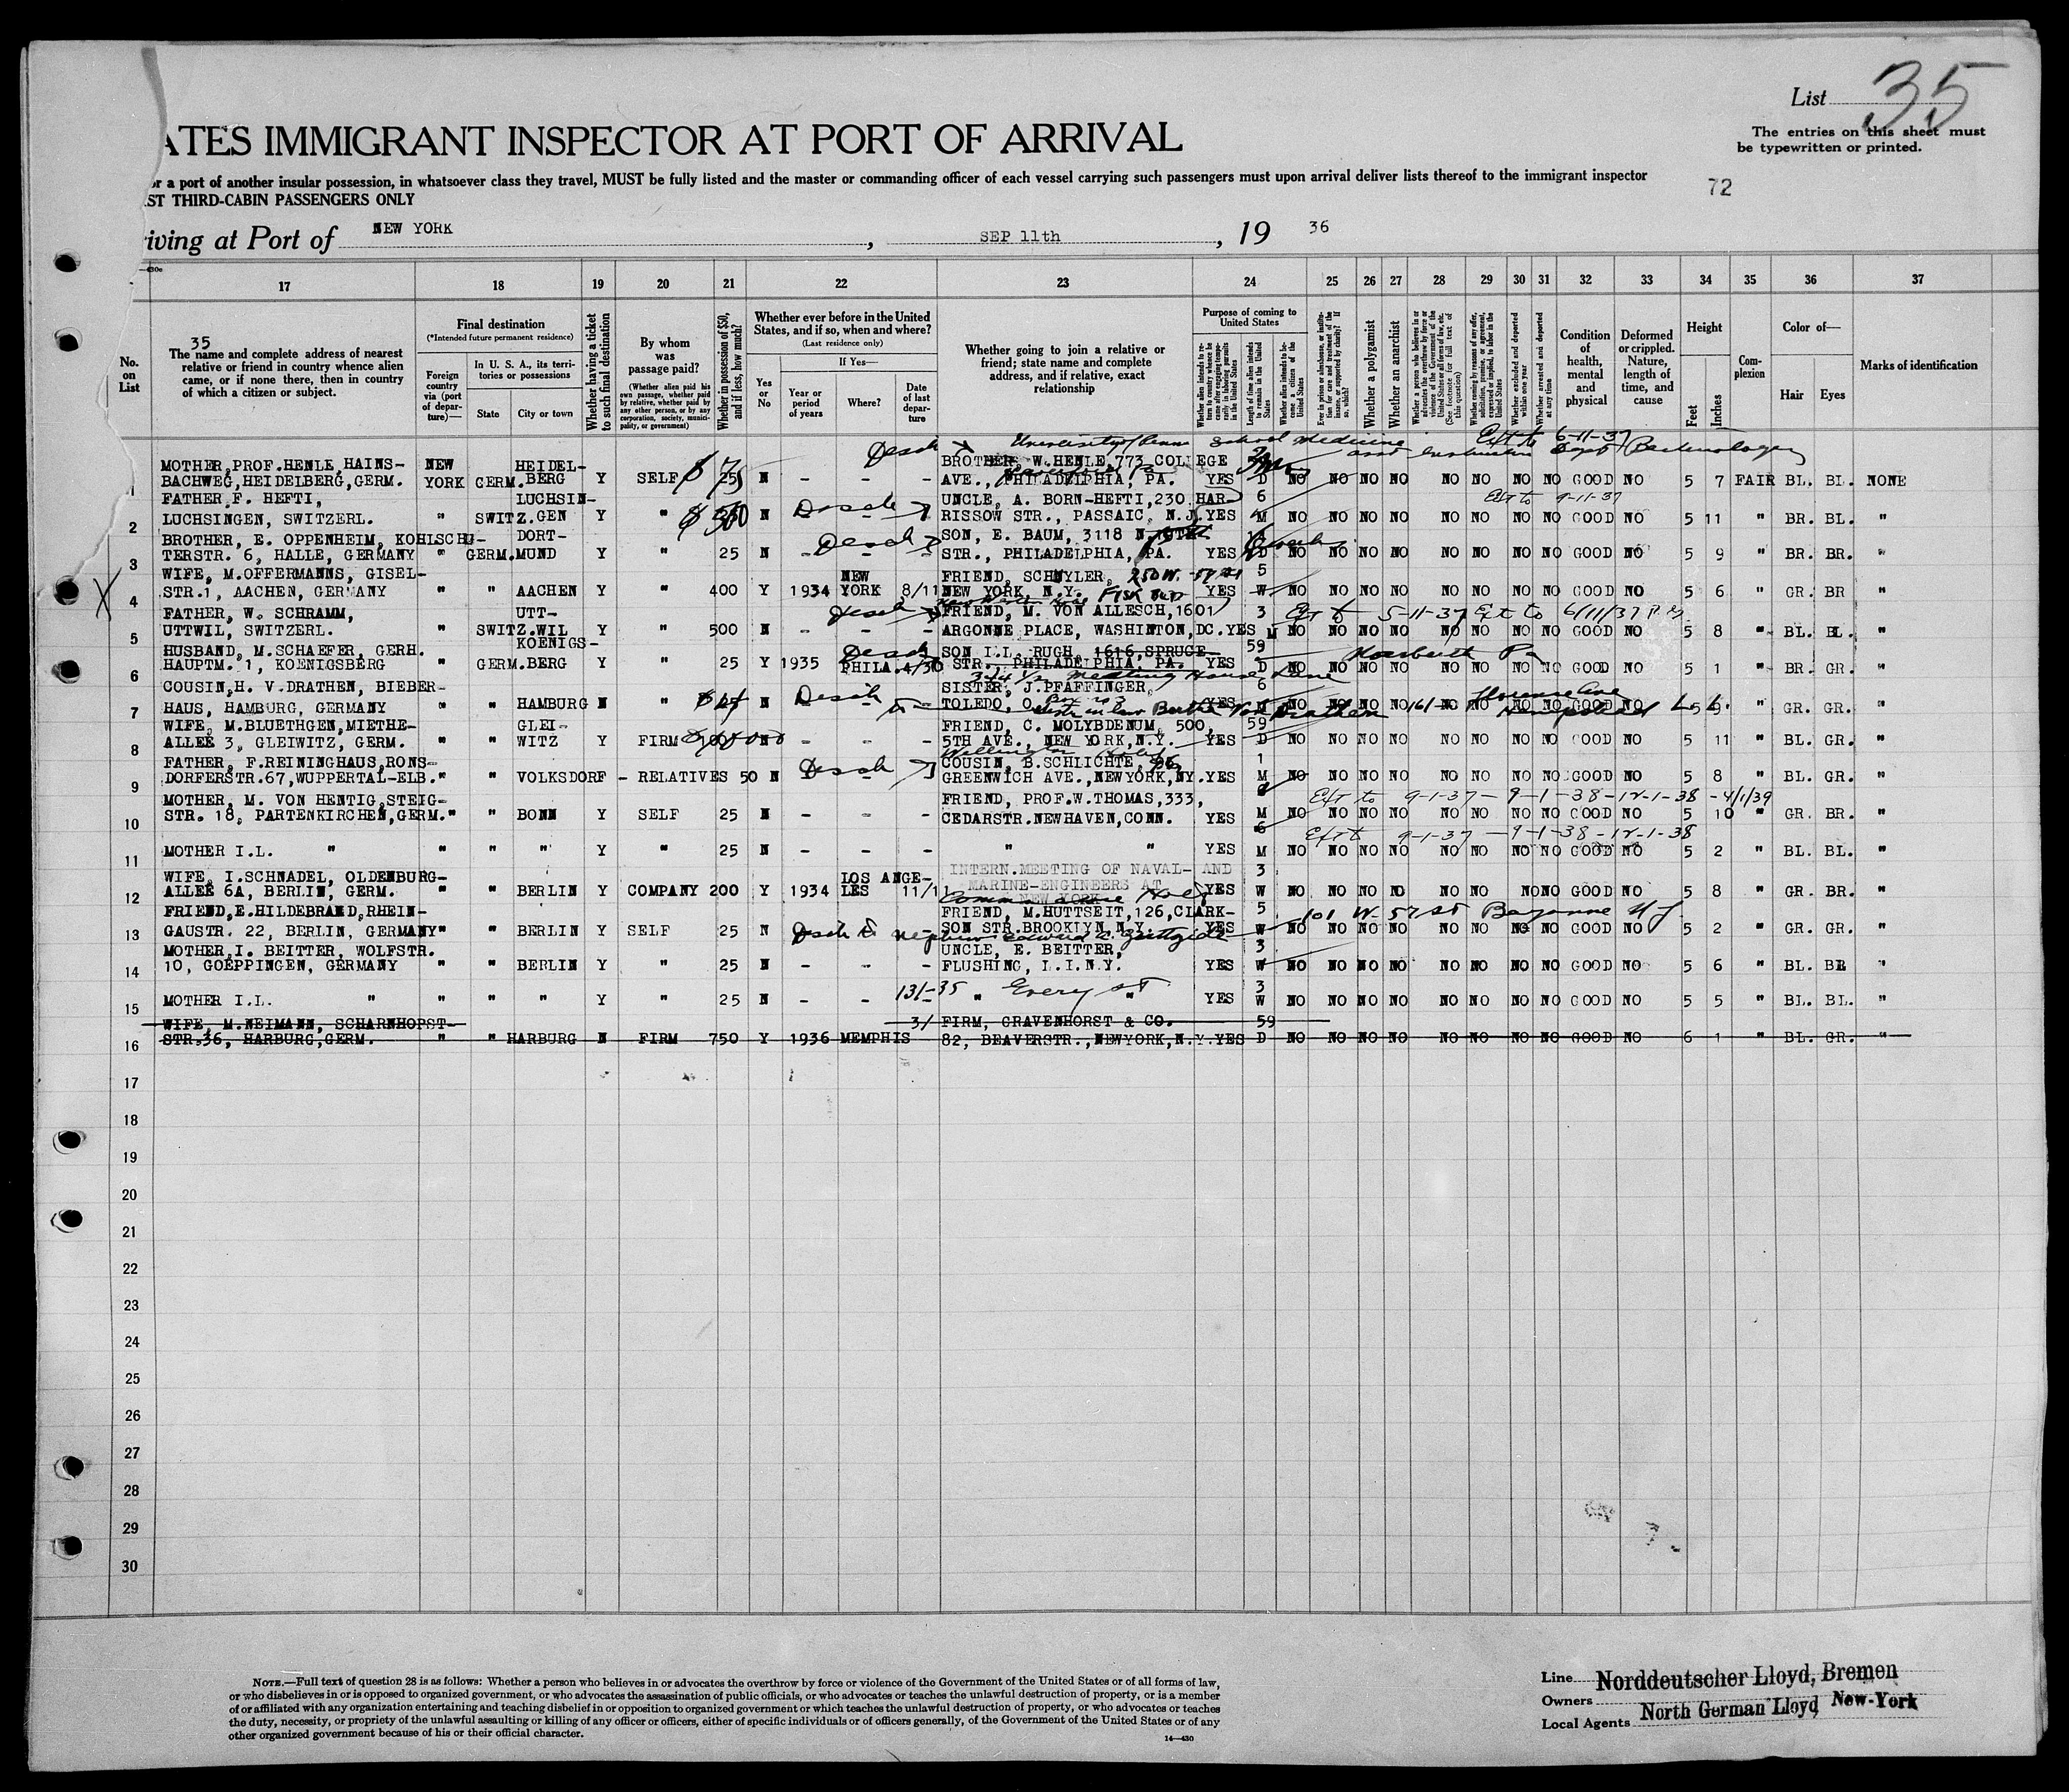 List 35
The entries on this sheet must
be typewritten or printed.
ATES IMMIGRANT INSPECTOR AT PORT OF ARRIVAL
or a port of another insular possession, in whatsoever class they travel, MUST be fully listed and the master or commanding officer of each vessel carrying such passengers must upon arrival deliver lists thereof to the immigrant inspector
ST THIRD-CABIN PASSENGERS ONLY
72
iving at Port of NEW YORK , SEP 11th , 19 36
17 18 19 20 21 22 23 24 25 26 27 28 29 30 31 32 33 34 35 36 37
No. on List
35
The name and complete address of nearest
relative or friend in country whence alien
came, or if none there, then in country
of which a citizen or subject.
Final destination
(*Intended future permanent residence)
Foreign country via (port of departure)—
In U. S. A., its territories or possessions
State
City or town
Whether having a ticket to such final destination
By whom was passage paid?
(Whether alien paid his own passage, whether paid by relative, whether paid by any other person, or by any corporation, society, municipality, or government)
Whether in possession of $50, and if less, how much?
Whether ever before in the United
States, and if so, when and where?
(Last residence only)
Yes or No
If Yes—
Year or period of years
Where?
Date of last departure
Whether going to join a relative or
friend; state name and complete
address, and if relative, exact
relationship
Purpose of coming to
United States
Whether a polygamist
Whether an anarchist
Condition of health, mental and physical
Deformed or crippled. Nature, length of time, and cause
Height
Feet
Inches
Complexion
Color of—
Hair
Eyes
Marks of identification
University of Penna School Medicine Ext to 6-11-37
MOTHER,PROF.HENLE,HAINS- NEW HEIDEL- BROTHER, W.HENLE,773 COLLEGE
1 BACHWEG,HEIDELBERG,GERM. YORK GERM.BERG Y SELF 25 N - - - AVE., PHILADELPHIA, PA. YES D NO NO NO NO NO NO NO NO GOOD NO 5 7 FAIR BL. BL. NONE
FATHER,F. HEFTI, LUCHSIN- UNCLE, A. BORN-HEFTI,230 HAR- 6 Ext to 9-11-37
2 LUCHSINGEN, SWITZERL. " SWITZ.GEN Y " N - - - RISSOW STR., PASSAIC, N.J. YES M NO NO NO NO NO NO NO NO GOOD NO 5 11 " BR. BL. "
BROTHER, E. OPPENHEIM, KOHLSCHU- DORT- SON, E. BAUM, 3118 N.
3 TERSTR. 6, HALLE, GERMANY " GERM.MUND Y " 25 N - - - STR., PHILADELPHIA, PA. YES D NO NO NO NO NO NO NO NO GOOD NO 5 9 " BR. BR. "
WIFE, M.OFFERMANNS, GISEL- NEW FRIEND, SCHUYLER, 250 W. 57 St 5
X 4 STR.1, AACHEN, GERMANY " " AACHEN Y " 400 Y 1934 YORK 8/11 NEW YORK, N.Y. Fisk YES W NO NO NO NO NO NO NO NO GOOD NO 5 6 " GR. BR "
FATHER, W. SCHRAMM, UTT- FRIEND, M. VON ALLESCH,1601 3 Ext to 5-11-37 Ext to 6/11/37
5 UTTWIL, SWITZERL. " SWITZ.WIL Y " 500 N - - - ARGONNE PLACE, WASHINTON,DC.YES M NO NO NO NO NO NO NO NO GOOD NO 5 8 " BL. BL. "
HUSBAND, M.SCHAEFER, GERH. KOENIGS- SON I.L. RUGH, 1616,SPRUCE- 59
6 HAUPTM. 1, KOENIGSBERG " GERM.BERG Y " 25 Y 1935 PHILA.4/30 STR., PHILADELPHIA, PA. YES D NO NO NO NO NO NO NO NO GOOD NO 5 1 " BR. GR. "
Meeting House Lane
COUSIN,H. V.DRATHEN, BIEBER- SISTER, J.PFAFFINGER, 6
7 HAUS, HAMBURG, GERMANY " " HAMBURG N " N - - TOLEDO, O. YES NO NO NO NO NO NO NO NO GOOD NO 5 " GR. GR. "
Florence Ave Hempstead L.I.
WIFE, M.BLUETHGEN,MIETHE- GLEI- FRIEND, C. MOLYBDENUM, 500, 59
8 ALLEE 3, GLEIWITZ, GERM. " " WITZ Y FIRM N - - - 5TH AVE., NEW YORK,N.Y. YES D NO NO NO NO NO NO NO NO GOOD NO 5 11 " BL. GR. "
FATHER, F.REININGHAUS,RONS- Wellington Hotel COUSIN, B.SCHLICHTE, 1
9 DORFERSTR.67,WUPPERTAL-ELB." " VOLKSDORF - RELATIVES 50 N GREENWICH AVE.,NEWYORK,NY.YES M NO NO NO NO NO NO NO NO GOOD NO 5 8 " BL. GR. "
MOTHER, M. VON HENTIG,STEIG- FRIEND, PROF.W.THOMAS,333, Ext to 9-1-37 - 9-1-38 - 12-1-38 - 4/1/39
10 STR. 18, PARTENKIRCHEN,GERM." " BONN Y SELF 25 N - - - CEDARSTR.NEWHAVEN,CONN. YES M NO NO NO NO NO NO NO NO GOOD NO 5 10 " GR. BR. "
6 Ext 9-1-37 - 9-1-38 - 12-1-38
11 MOTHER I.L. " " " " Y " 25 N - - - " " YES M NO NO NO NO NO NO NO NO GOOD NO 5 2 " BL. BL. "
WIFE, I.SCHNADEL, OLDENBURG- LOS ANGE- INTERN.MEETING OF NAVAL- AND 3
12 ALLEE 6A, BERLIN, GERM. " " BERLIN Y COMPANY 200 Y 1934 LES 11/11 MARINE-ENGINEERS AT NEW YORK YES W NO NO NO NO NO NO NO NO GOOD NO 5 8 " GR. BR. "
Commodore Hotel
FRIEND,E.HILDEBRAND,RHEIN- FRIEND, M.HUTTSEIT,126,CLARK- 5 101 W- 57 St Bayonne N J
13 GAUSTR. 22, BERLIN, GERMANY" " BERLIN Y SELF 25 N SON STR.BROOKLYN,N.Y. YES W NO NO NO NO NO NO NO NO GOOD NO 5 2 " GR. GR. "
MOTHER,I. BEITTER, WOLFSTR. UNCLE, E. BEITTER, 3
14 10, GOEPPINGEN, GERMANY " " BERLIN Y " 25 N - - - FLUSHING, L.I.N.Y. YES W NO NO NO NO NO NO NO NO GOOD NO 5 6 " BL. BR "
131-35 Every St 3
15 MOTHER I.L. " " " " Y " 25 N - - " " YES W NO NO NO NO NO NO NO NO GOOD NO 5 5 " BL. BL. "
WIFE, M.NEIMANN, SCHARNHORST- 3/ FIRM, GRAVENHORST & CO. 59
16 STR.36, HARBURG,GERM. " " HARBURG N FIRM 750 Y 1936 MEMPHIS 82, BEAVERSTR.,NEWYORK,N.Y.YES D NO NO NO NO NO NO NO NO GOOD NO 6 1 " BL. GR. "
17
18
19
20
21
22
23
24
25
26
27
28
29
30
NOTE.—Full text of question 28 is as follows: Whether a person who believes in or advocates the overthrow by force or violence of the Government of the United States or of all forms of law,
or who disbelieves in or is opposed to organized government, or who advocates the assassination of public officials, or who advocates or teaches the unlawful destruction of property, or is a member
of or affiliated with any organization entertaining and teaching disbelief in or opposition to organized government or which teaches the unlawful destruction of property, or who advocates or teaches
the duty, necessity, or propriety of the unlawful assaulting or killing of any officer or officers, either of specific individuals or of officers generally, of the Government of the United States or of any
other organized government because of his or their official character.
14—430
Line Norddeutscher Lloyd, Bremen
Owners
Local Agents North German Lloyd New-York